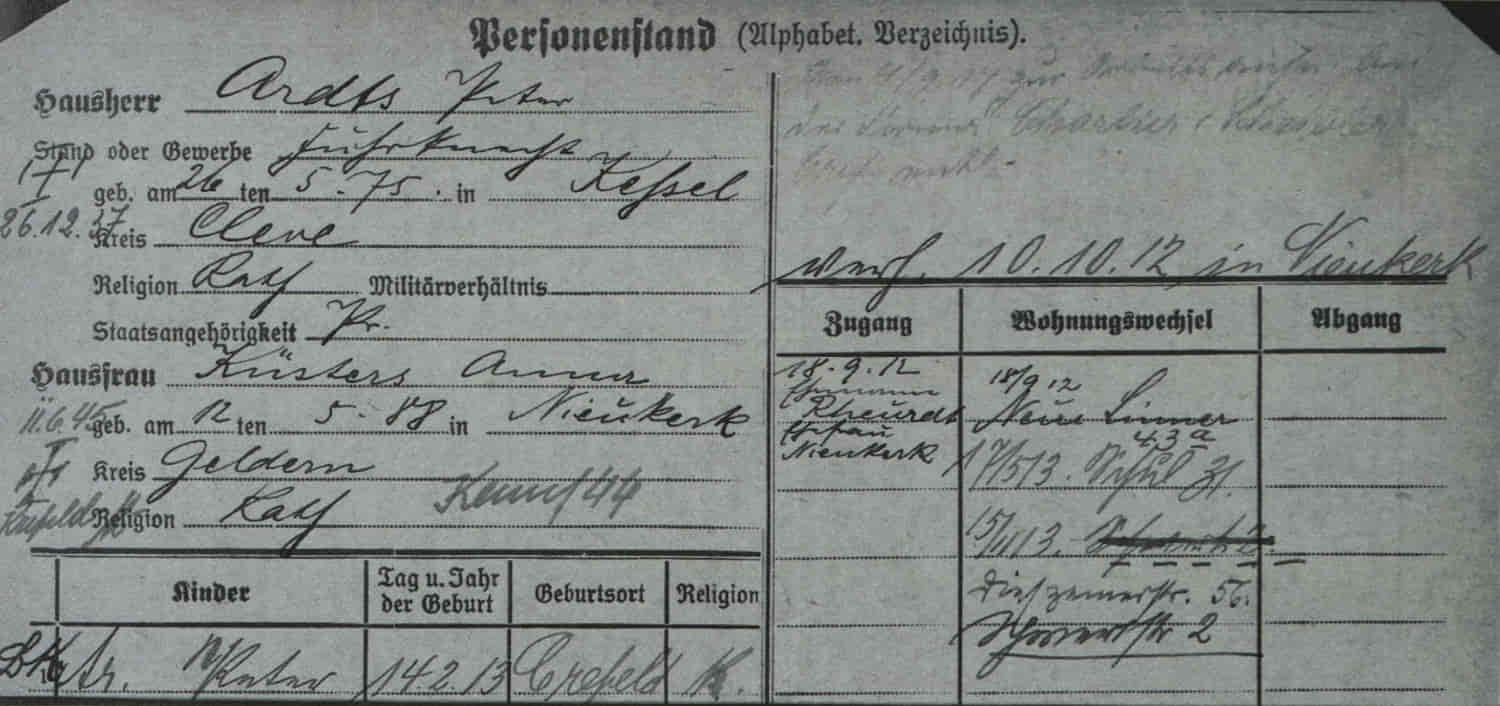 Personenstand (Alphabet. Verzeichnis).
Hausherr Ardts Peter
Stand oder Gewerbe Fuhrknecht
geb. am 26 ten 5. 75. in Kessel
26.12.37
Kreis Cleve
Religion Kath Militärverhältnis
Staatsangehörigkeit Pr.
Hausfrau Küsters Anna
11.6.45
geb. am 12 ten 5. 88 in Nieukerk
Kreis Geldern
Krefeld
Religion Kath
Kinder Tag u. Jahr der Geburt Geburtsort Religion
Ar. Peter 14.2.13 Crefeld K.
zur
der Firma Charlier
verh. 10.10.12 in Nieukerk
Zugang Wohnungswechsel Abgang
18.9.12
Ehemann
Rheurdt
Ehefrau
Nieukerk
18/9 12
Neue Linner
43a
17/5 13. 31.
15/11 13.
Dießemerstr. 56.
Schwertstr 2